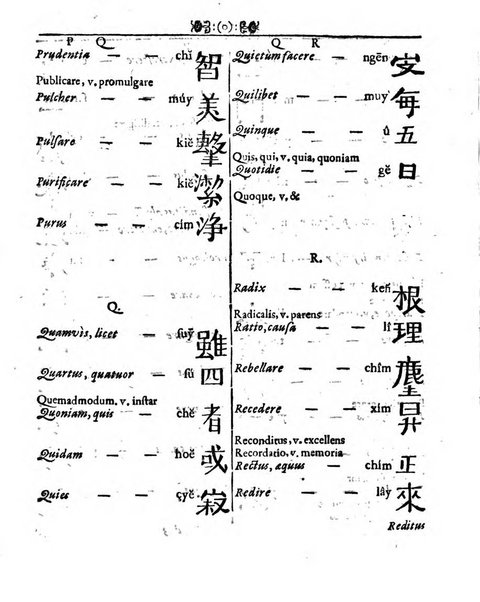 :(0):
P Q
Prudentia — — chī 智
Publicare, v. promulgare
Pulcher — — múy 美
Pulsare — — kiĕ 擊
Purificare — — kiĕ 潔
Purus — — cím 净
Q.
Quamvis, licet — suȳ 雖
Quartus, quatuor — sú 四
Quemadmodum. v. instar
Quoniam, quis — chĕ 者
Quidam — — hoĕ 或
Quies — — çyĕ 寂
Q R
Quietùm facere — ngēn 安
Quilibet — — muy 每
Quinque — — ù 五
Quis, qui, v. quia, quoniam
Quotidie — — gĕ 日
Quoque, v. &
R.
Radix — — keñ 根
Radicalis, v. parens
Ratio, causa — — lí 理
Rebellare — — chîm
Recedere — — xím 昇
Reconditus, v. excellens
Recordatio, v. memoria
Rectus, æquus — chím 正
Redire — — lây 來
Reditus